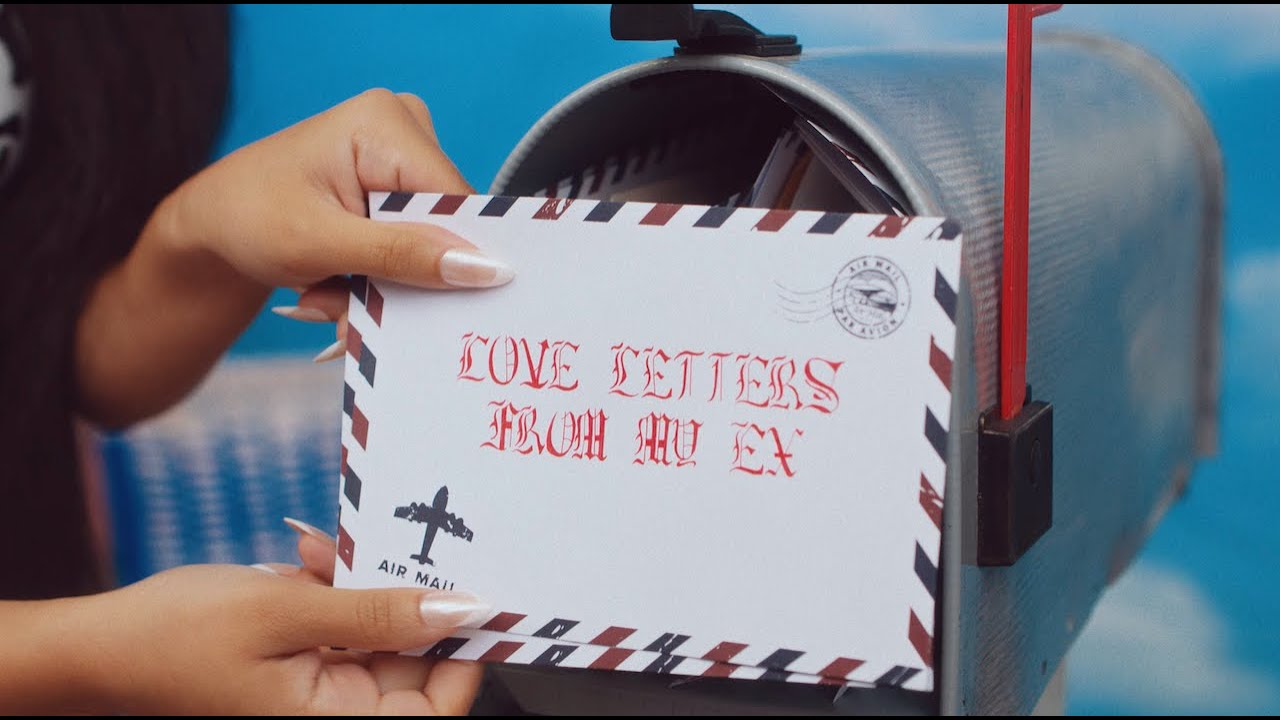 AIR MAIL
PAR AVION
LOVE LETTERS
FROM MY EX
AIR MAIL